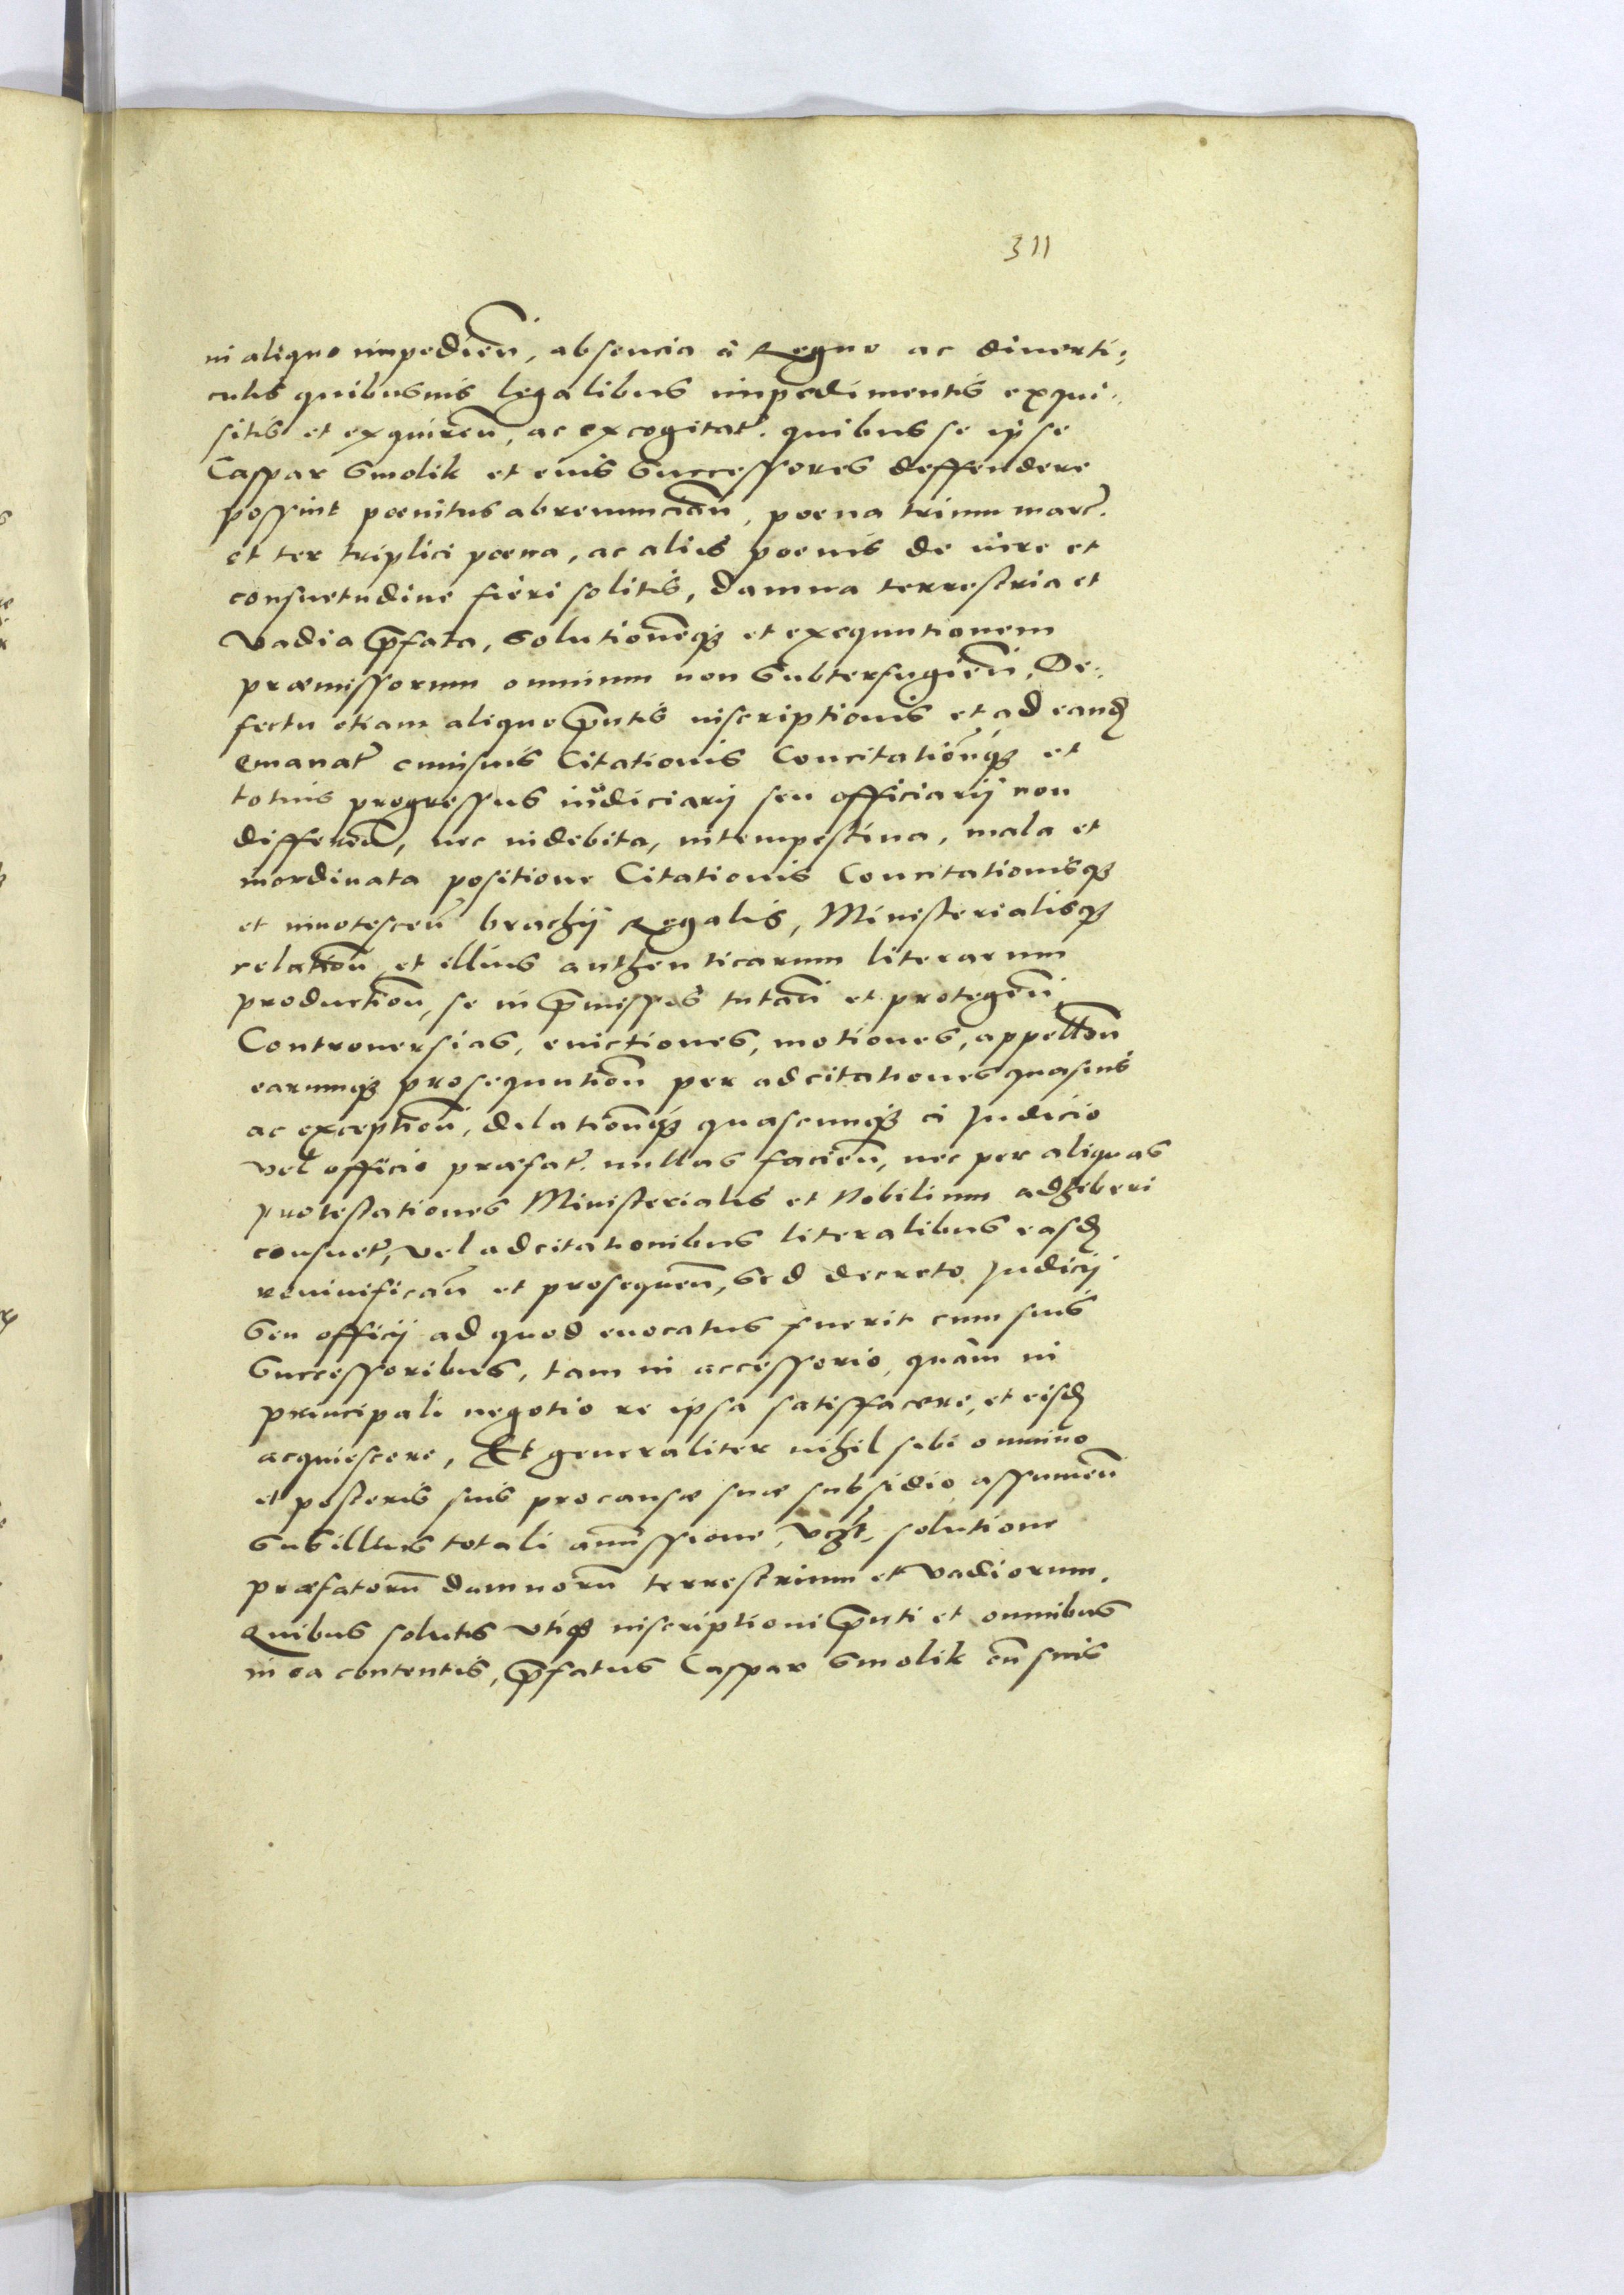 311
in aliquo impedien̄, absencia à Regno ac diuerti:
culis quibusuis legalibus impedimentis exqui:
sitis et exquiren̄, ac excogitat̄. quibus se ipse
Caspar Smolik et eius Successores deffendere
possint poenitus abrenuncian̄, poena trium marc̄.
et ter triplici poena, ac aliis poenis de iure et
consuetudine fieri solitis, damna terrestria et
vadia p̄fata, Solutionēq₃ et exequutionem
præmissorum omnium non Subterfugien̄, De:
fectu etiam aliquo p̄ntis inscriptionis et ad eand
emanat̄ cuiusuis Citationis Concitationisq₃ et
totius progressus iudiciarij seu officiarij non
differen̄, nec indebita, intempestiua, mala et
inordinata positione Citationis Concitationisq₃
et innotescen̄ brachij Regalis, Ministerialisq₃
relation̄ et illius authenticarum literarum
production̄, se in p̄missis tutan̄ et protegen̄,
Controuersias, euictiones, motiones, appellon̄
earumq₃ prosequution̄ per adcitationes quasuis
ac exception̄, dilation̄q₃ quascunq₃ à Judicio
vel officio præfat̄. nullas facien̄, nec per aliquas
protestationes Ministerialis et Nobilium adhiberi
consuet̄, vel adcitationibus literalibus easd
reuiuifican̄ et prosequen̄, Sed decreto Judicij
Seu officij ad quod euocatus fuerit cum suis
Successoribus, tam in accessorio, quàm in
principali negotio re ipsa satisffacere, et eisd
acquiescere, Et generaliter nihil sibi omnino
et posteris suis pro causæ suæ subsidio assumen̄
Sub illius totali amissione, solutione
præfatorū damnorū terrestrium et vadiorum.
Quibus solutis vtiq₃ inscriptioni p̄nti et omnibus
in ea contentis, p̄fatus Caspar Smolik cū suis